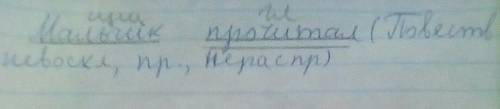 сущ гл
Мальчик прочитал (Повеств
невоскл, пр., нераспр)